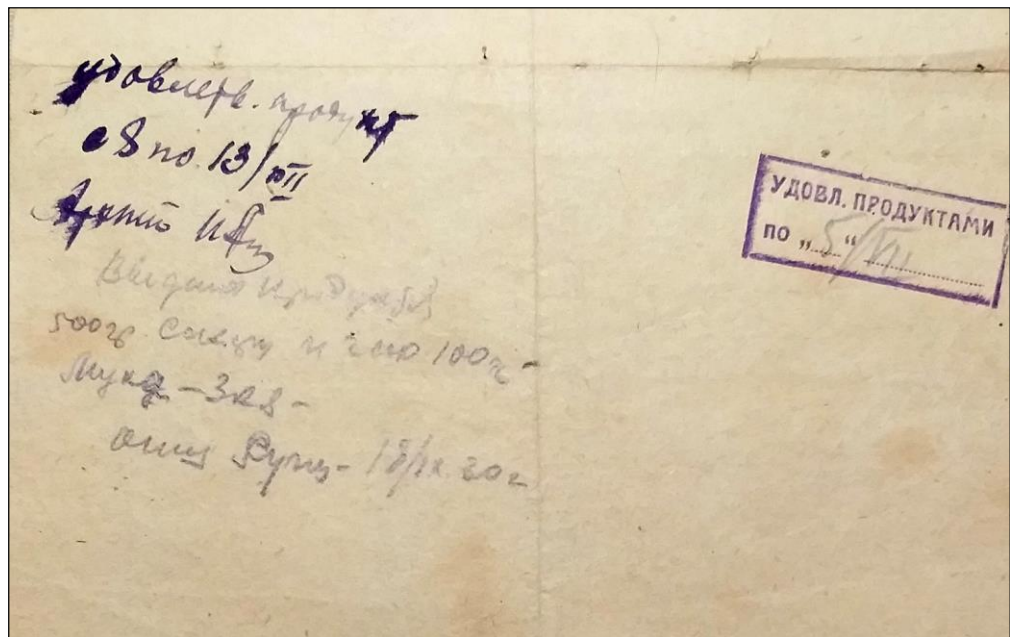 удовлетв. продукт
с 8 по 13/VIII
Выдано продуктов
500 гр. сахару и чаю 100 гр -
Мука - 3 кг -
- 18/IX 30 г
УДОВЛ. ПРОДУКТАМИ
ПО „5“ VII